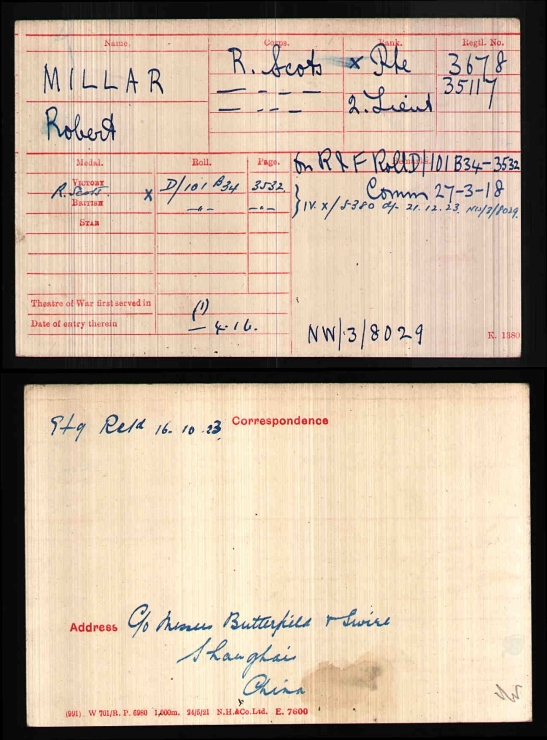 Name. Corps. Rank. Regtl. No.
MILLAR R. Scots x Pte 3678
— " — 35117
Robert — " — 2. Lieut
Medal. Roll. Page. on R & F Roll D/101 B34-3532
Victory x D/101 B34 3532 Comm 27-3-18
R. Scots
British —"— —"— } IV. X/5380 21.12.23. NW/3/8029.
Star
Theatre of War first served in (1)
Date of entry therein — 4-16. NW/3/8029 K. 1380
Retd 16-10-23 Correspondence
Address C/o Messrs Butterfield & Swire
Shanghai
China
(991) W 701/R. P. 6980 1,000m. 24/5/21 N.H.&Co.Ltd. E. 7600